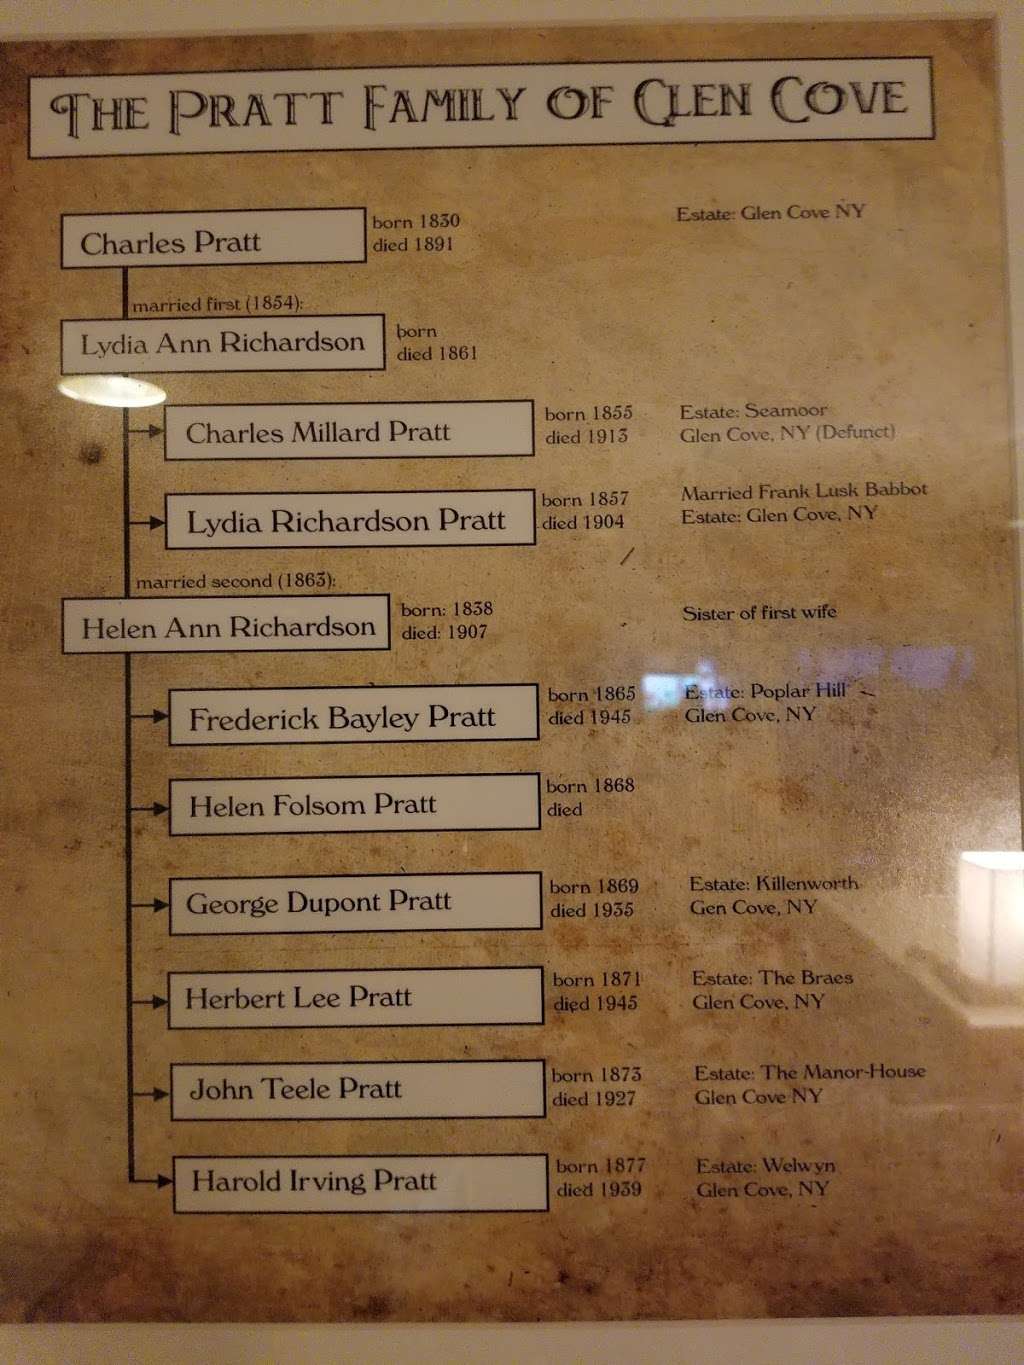 THE PRATT FAMILY OF GLEN COVE
Charles Pratt
born 1830
died 1891
Estate: Glen Cove NY
married first (1854):
Lydia Ann Richardson
born
died 1861
Charles Millard Pratt
born 1855
died 1913
Estate: Seamoor
Glen Cove, NY (Defunct)
Lydia Richardson Pratt
born 1857
died 1904
Married Frank Lusk Babbot
Estate: Glen Cove, NY
married second (1863):
Helen Ann Richardson
born: 1838
died: 1907
Sister of first wife
Frederick Bayley Pratt
born 1865
died 1945
Estate: Poplar Hill
Glen Cove, NY
Helen Folsom Pratt
born 1868
died
George Dupont Pratt
born 1869
died 1935
Estate: Killenworth
Gen Cove, NY
Herbert Lee Pratt
born 1871
died 1945
Estate: The Braes
Glen Cove, NY
John Teele Pratt
born 1873
died 1927
Estate: The Manor-House
Glen Cove NY
Harold Irving Pratt
born 1877
died 1939
Estate: Welwyn
Glen Cove, NY